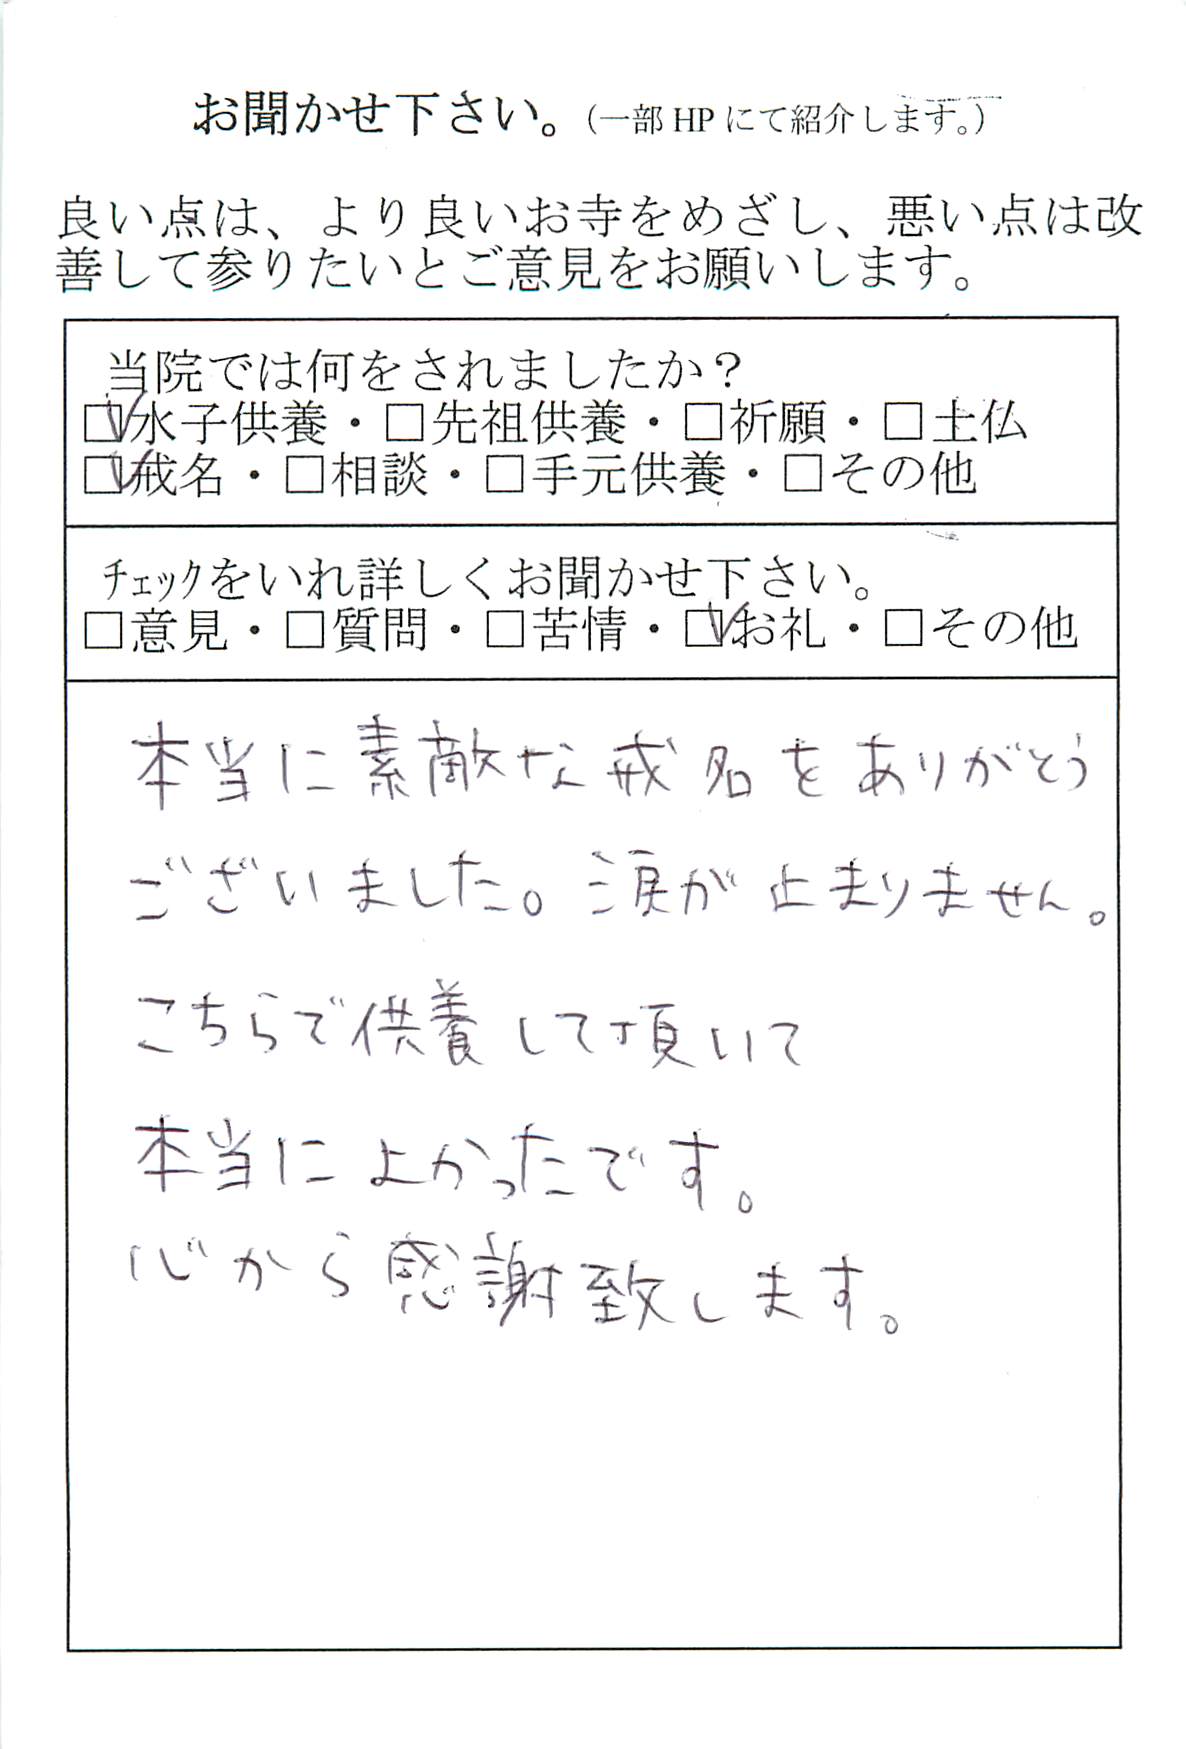 お聞かせ下さい。（一部 HP にて紹介します。）
良い点は、より良いお寺をめざし、悪い点は改
善して参りたいとご意見をお願いします。
当院では何をされましたか？
☑水子供養・□先祖供養・□祈願・□土仏
☑戒名・□相談・□手元供養・□その他
ﾁｪｯｸをいれ詳しくお聞かせ下さい。
□意見・□質問・□苦情・☑お礼・□その他
本当に素敵な戒名をありがとう
ございました。涙が止まりません。
こちらで供養して頂いて
本当によかったです。
心から感謝致します。